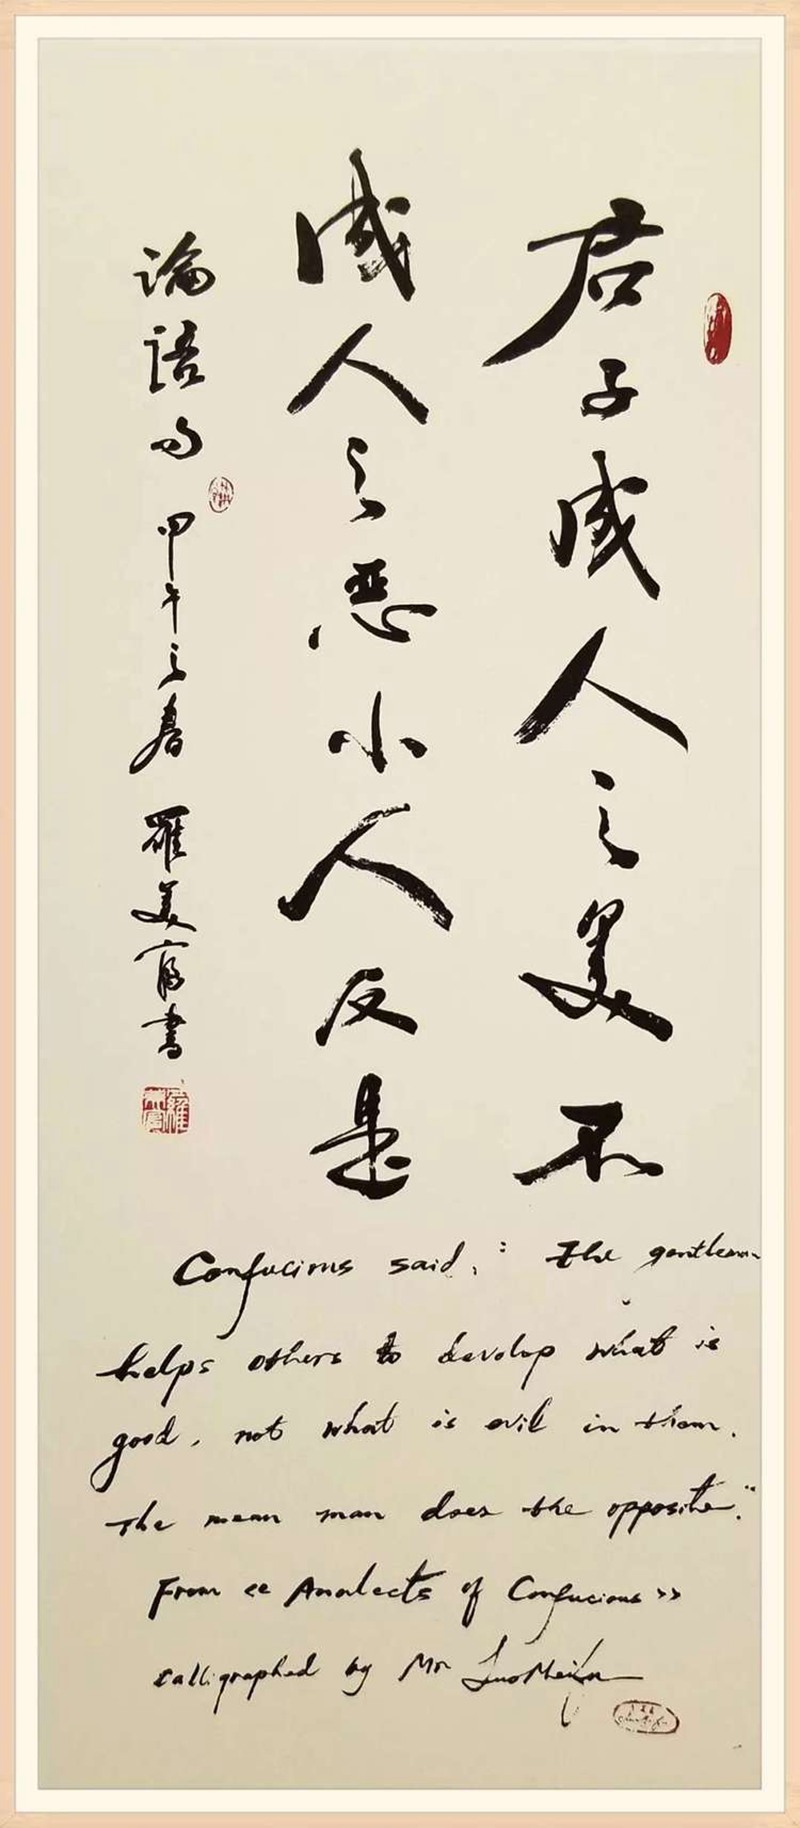 君子成人之美不
成人之恶小人反是
論語句 甲午之春 羅美富書
Confucious said: "The gentleman
helps others to develop what is
good, not what is evil in them.
The mean man does the opposite."
From << Analects of Confucious >>
Calligraphed by Mr LuoMeifu